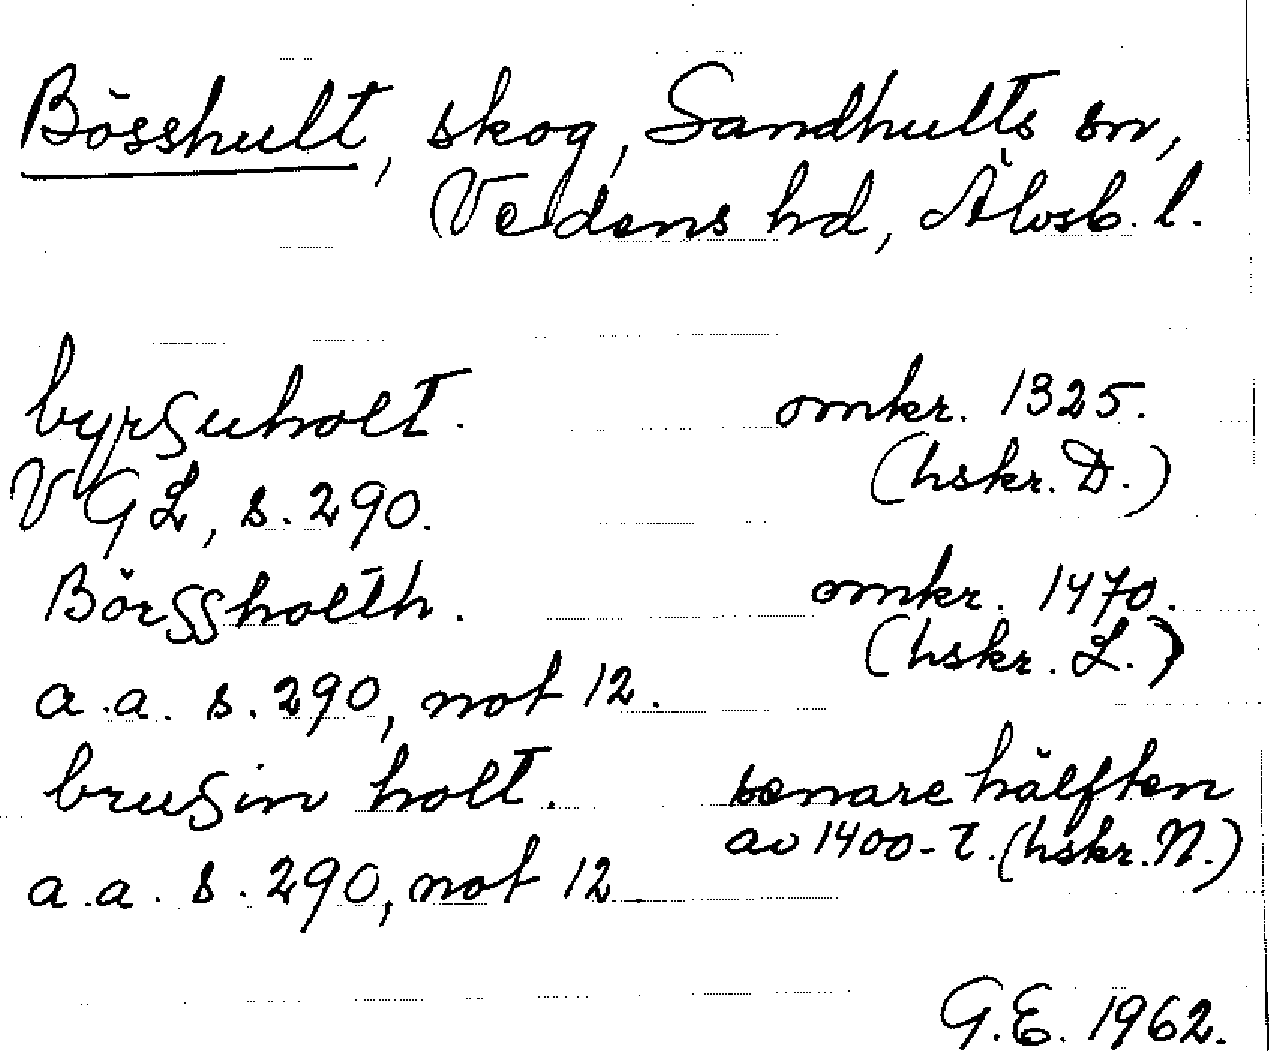 Bösshult, skog, Sandhults sn,
Vedens hd, Älvsb. l.
byrsuholt. omkr. 1325.
VGL, s. 290. (hskr. D.)
Börssholth. omkr. 1470.
a.a. s. 290, not 12. (hskr. L.)
brusin holt. senare hälften
a.a. s. 290, not 12 av 1400-t. (hskr. N.)
G.E. 1962.